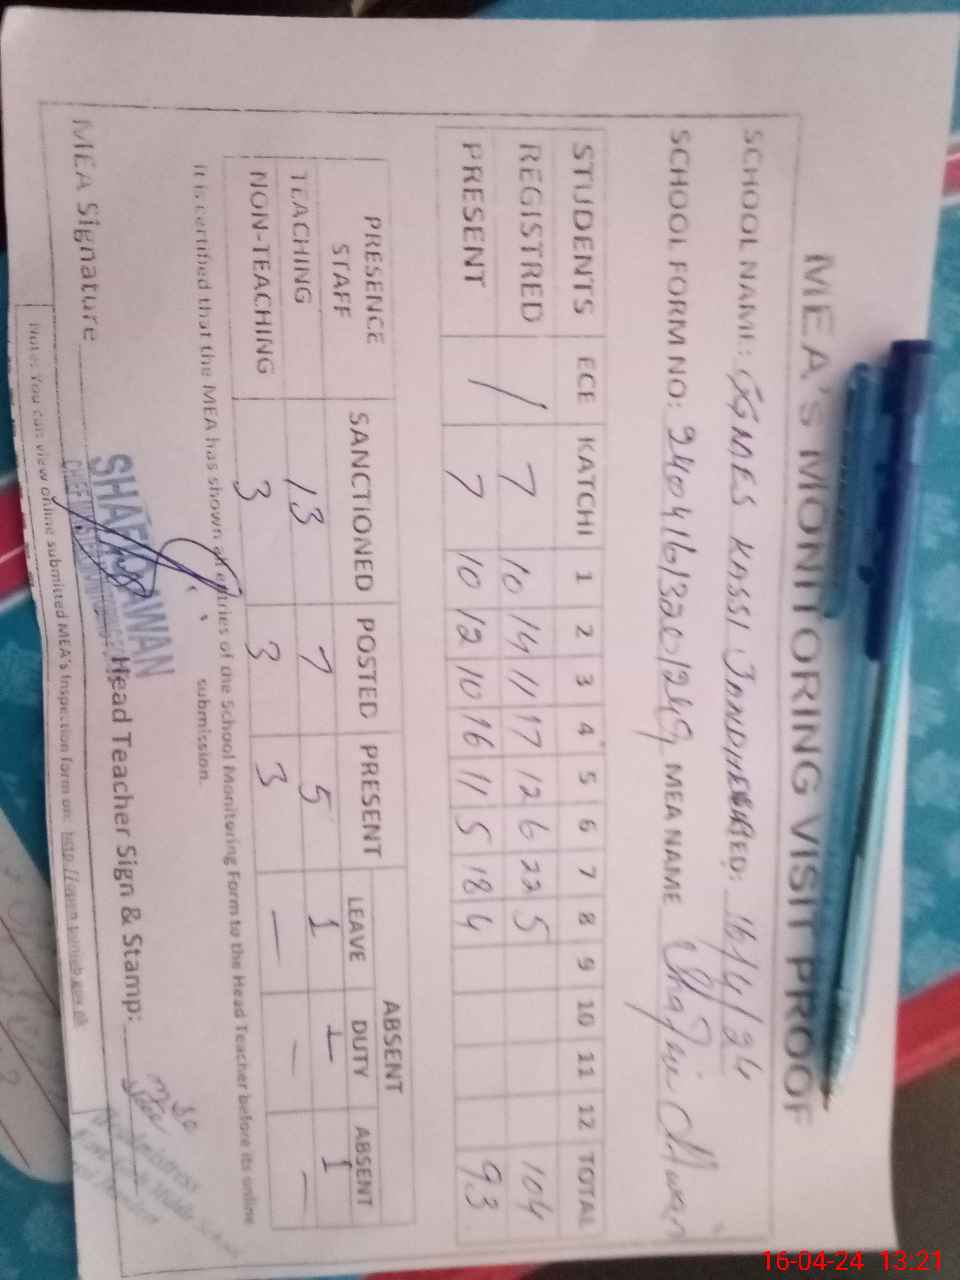 MEA'S MONITORING VISIT PROOF
SCHOOL NAME: GGMES KASSI DATED: 16/4/24
SCHOOL FORM NO: MEA NAME
STUDENTS ECE KATCHI 1 2 3 4 5 6 7 8 9 10 11 12 TOTAL
REGISTRED / 7 10 14 11 17 12 6 22 5 104
PRESENT / 7 10 12 10 16 11 5 18 4 93
PRESENCE STAFF SANCTIONED POSTED PRESENT ABSENT
LEAVE DUTY ABSENT
TEACHING 13 7 5 1 1 1
NON-TEACHING 3 3 3 — — —
It is certified that the MEA has shown all entries of the School Monitoring Form to the Head Teacher before its online
submission.
MEA Signature Head Teacher Sign & Stamp:
SHAFI AWAN
Note: You can view online submitted MEA's Inspection form on:
16-04-24 13:21